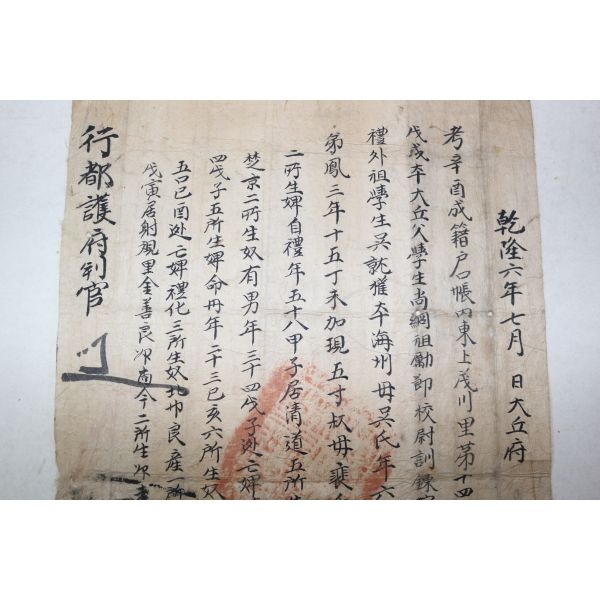 乾隆六年七月 日大丘府
考辛酉成籍户口帳內東上茂川里第十四
戊戌本大丘父學生尚綱祖勵節校尉訓鍊
禮外祖學生吳就獲本海州母吳氏年六
弟鳳三年十五丁未加現五寸叔母裵
二所生婢自禮年五十八甲子居清道五所生
楚京二所生奴有男年三十四戊子逃亡婢
四戊子五所生婢命丹年二十三己亥六所生奴
五口己酉逃亡婢禮化三所生奴 良産一所
戊寅居射觀里金善良 今二所生
行都護府判官